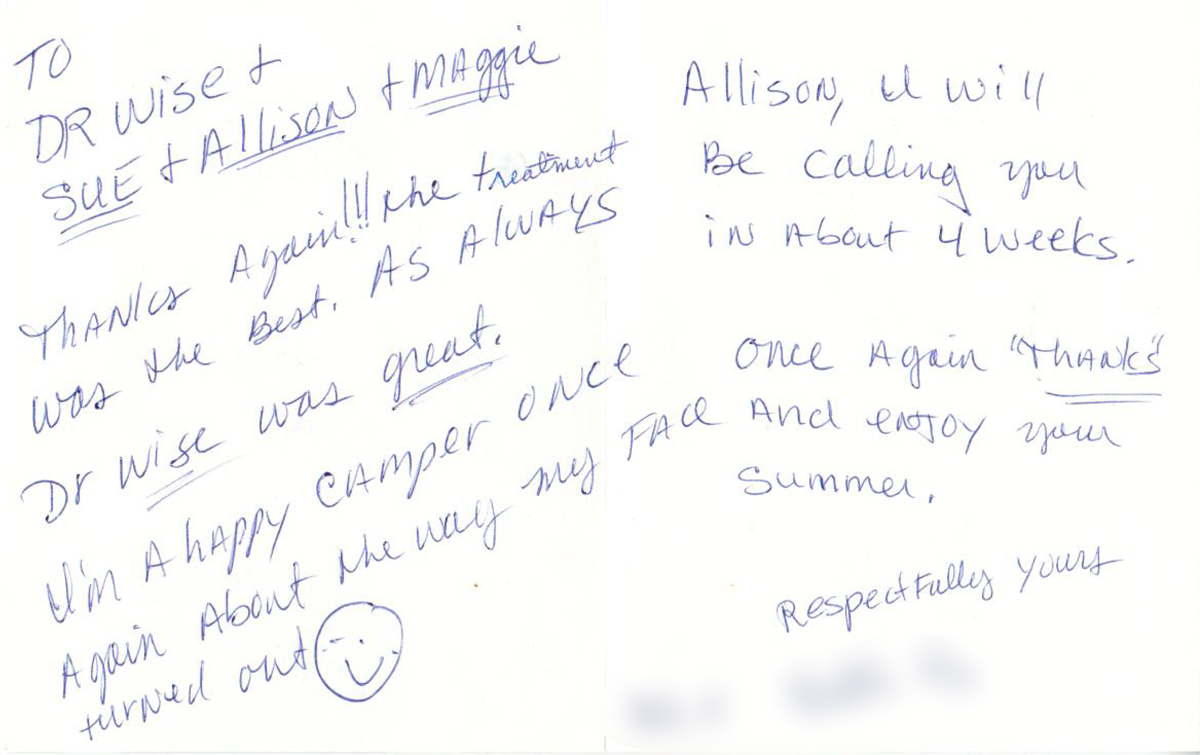 TO
DR WISE +
SUE + Allison + MAggie
THANKS Again!!! the treatment
was the Best. AS AlWAYS
Dr Wise was great.
I'm A hAppy CAmper ONCE
Again About the way my FAce
turned out
Allison, I will
Be calling you
iN About 4 weeks.
Once Again "Thanks"
And enjoy your
Summer.
Respectfully yours